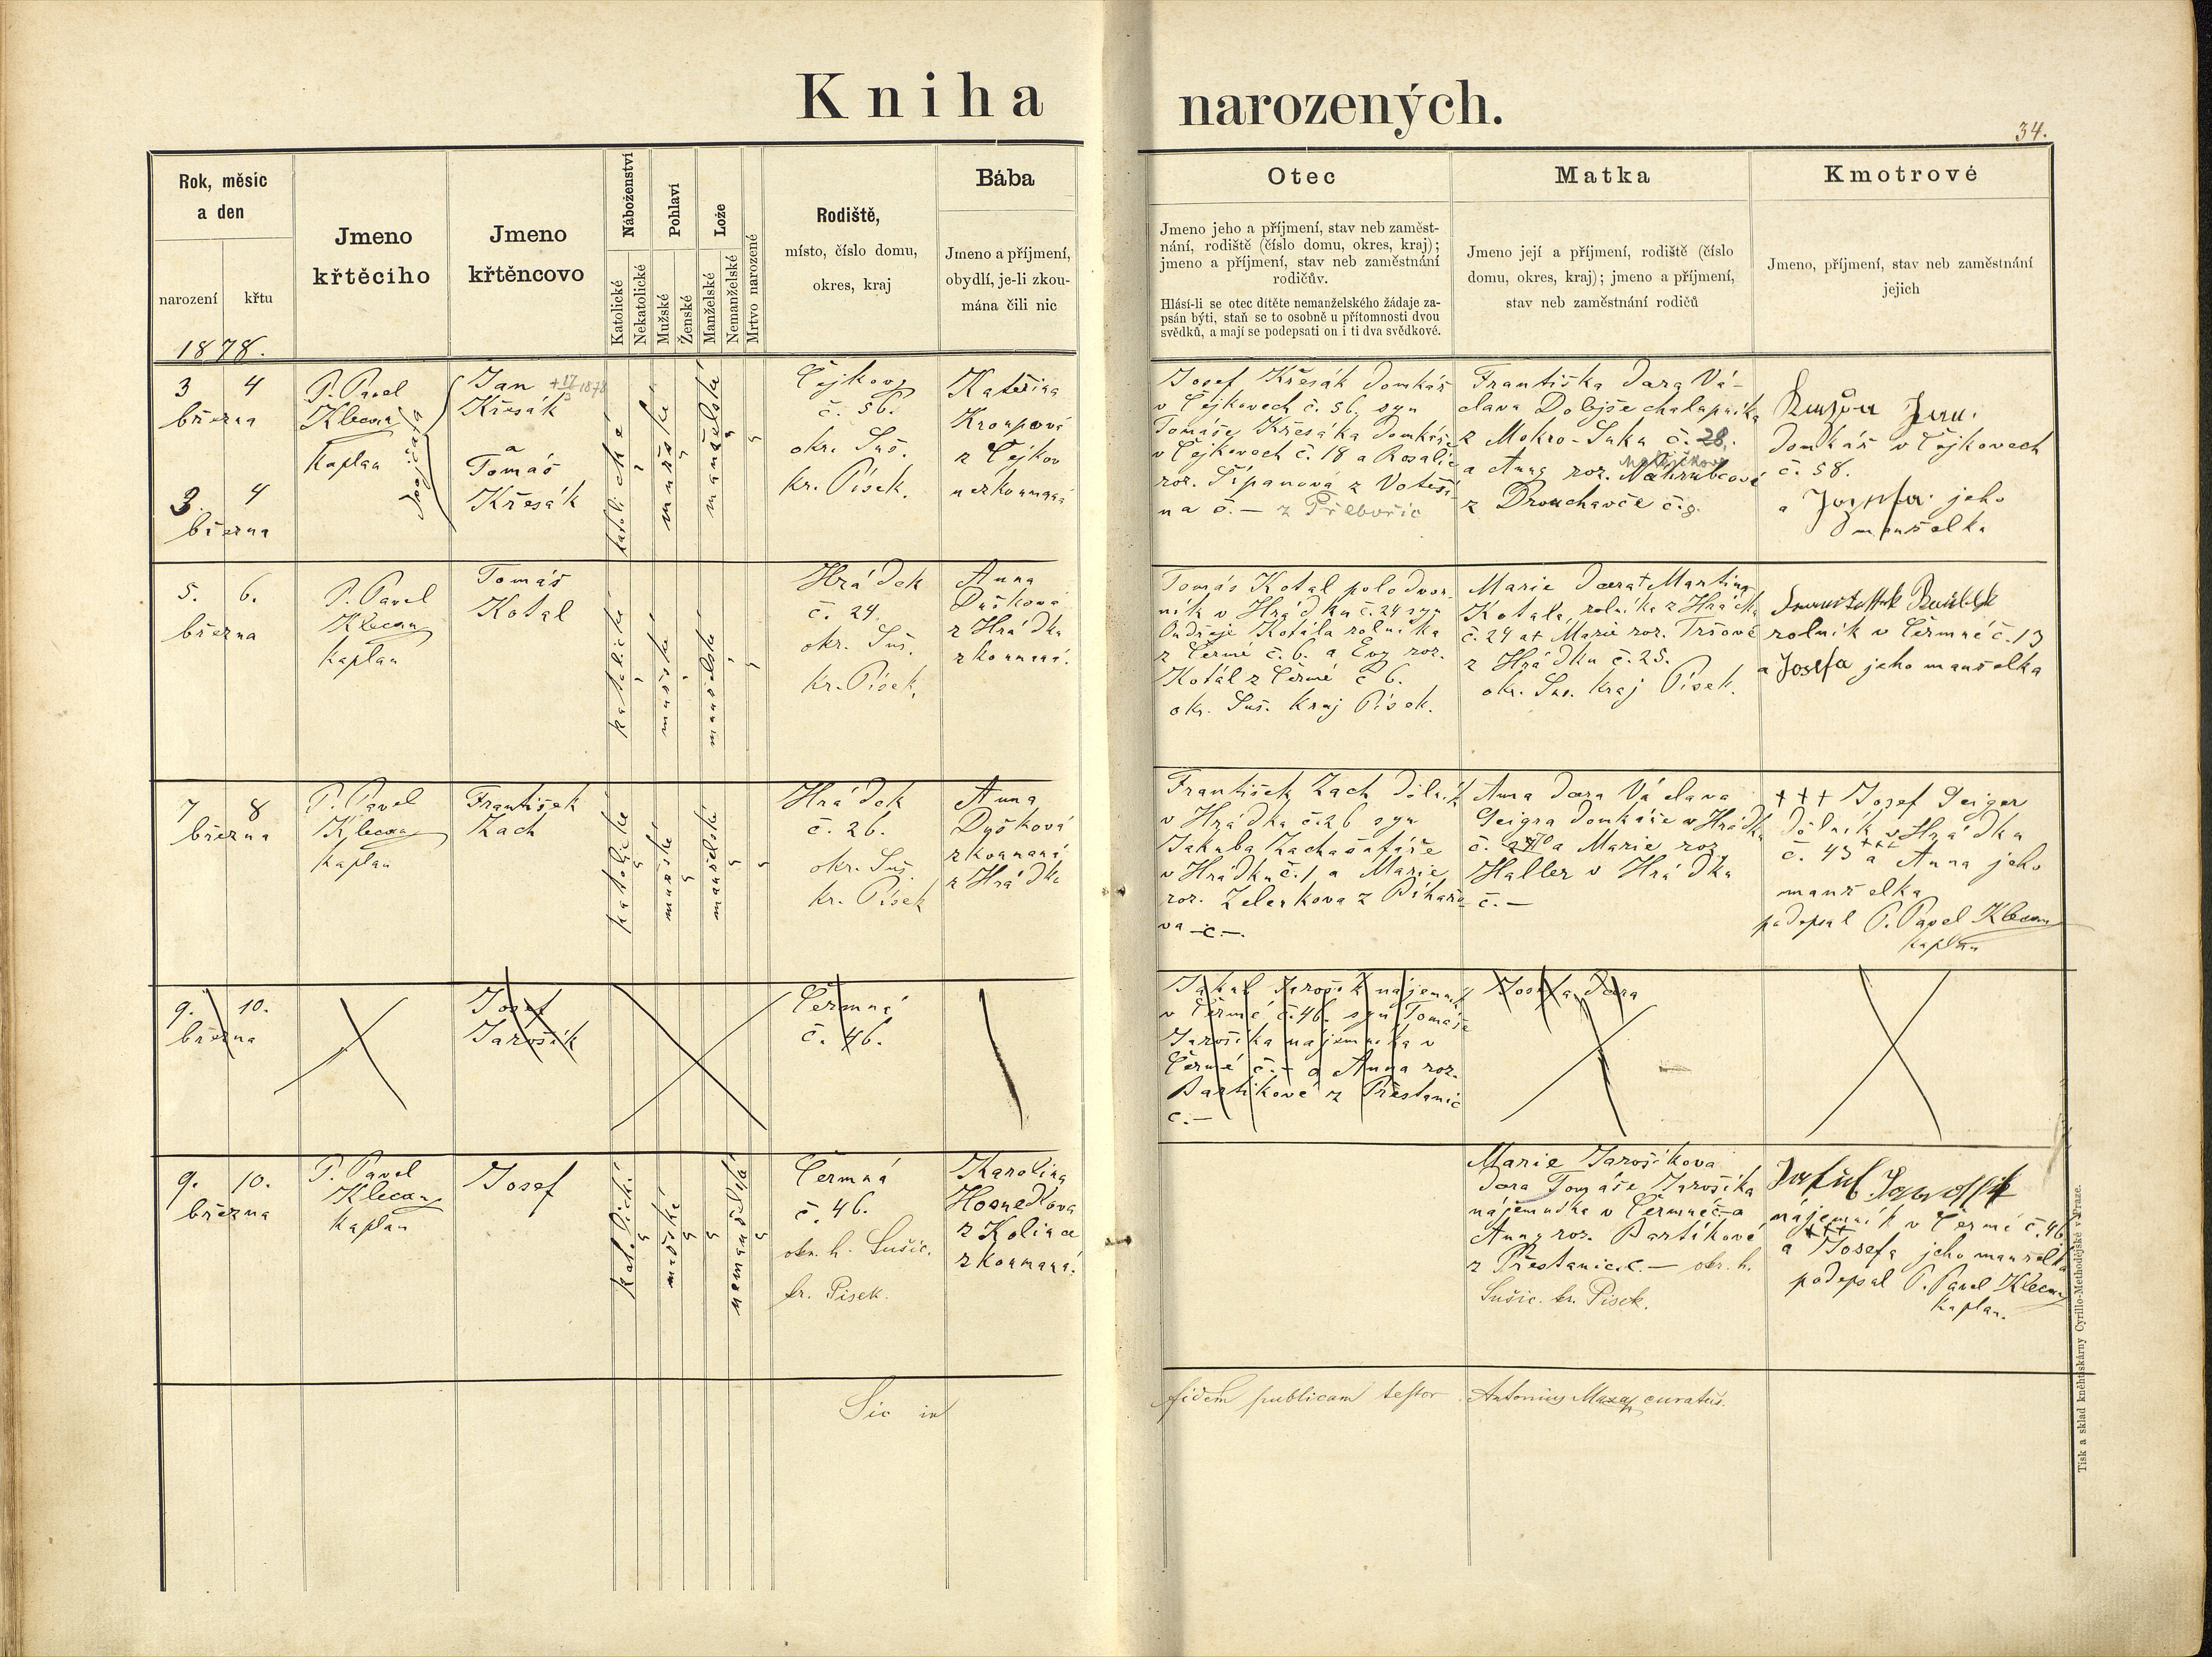 Kniha narozených.
34.
Rok, měsíc
a den
narození
křtu
1878.
Jmeno
křtěcího
Jmeno
křtěncovo
Náboženství
Katolické
Nekatolické
Pohlaví
Mužské
Ženské
Lože
Manželské
Nemanželské
Mrtvo narozené
Rodiště,
místo, číslo domu,
okres, kraj
Bába
Jmeno a příjmení,
obydlí, je-li zkou-
mána čili nic
Otec
Jmeno jeho a příjmení, stav neb zaměst-
nání, rodiště (číslo domu, okres, kraj);
jmeno a příjmení, stav neb zaměstnání
rodičův.
Hlásí-li se otec dítěte nemanželského žádaje za-
psán býti, staň se to osobně u přítomnosti dvou
svědků, a mají se podepsati on i ti dva svědkové.
Matka
Jmeno její a příjmení, rodiště (číslo
domu, okres, kraj); jmeno a příjmení,
stav neb zaměstnání rodičů
Kmotrové
Jmeno, příjmení, stav neb zaměstnání
jejich
3 4
března
3. 4
března
P. Pavel
Klecan
Kaplan
dvojčata
Jan + 17/3 1878
Křesák
a
Tomáš
Křesák
katolické
mužské
manželské
Čejkovy
č. 56.
okr. Suš.
kr. Písek.
Kateřina
Kroupová
z Čejkov
nezkoumaná
Josef Křesák domkář
v Čejkovech č. 56. syn
Tomáše Křesáka domkáře
v Čejkovech č. 18 a Rosalie
roz. Šípanová z Votěši
na č. — z Přebořic
Františka dcra Vá-
clava Dolejše chalupníka
z Mokro-Suka č. 28.
a Anny roz. Nahrubcové
z Drouhavče č. 8.
Jan
domkář v Čejkovech
č. 58.
a Josefa jeho
manželka
5. 6.
března
P. Pavel
Klecan
Kaplan
Tomáš
Kotal
katolické
mužské
manželské
Hrádek
č. 24.
okr. Suš.
kr. Písek.
Anna
Dušková
z Hrádku
zkoumaná.
Tomáš Kotal polodvor-
ník v Hrádku č. 24 syn
Ondřeje Kotála rolníka
z Čermé č. 6. a Evy roz.
Kotál z Čermé č 6.
okr. Suš. Kraj Písek.
Marie dcera + Martina
Kotala, rolníka z Hrádku
č. 24 a + Marie roz. Tršové
z Hrádku č. 25.
okr. Suš. Kraj Písek.
rolník v Čermné č. 13
a Josefa jeho manželka
7 8
března
P. Pavel
Klecan
Kaplan
František
Zach
katolické
mužské
manželské
Hrádek
č. 26.
okr. Suš.
kr. Písek
Anna
Dušková
zkoumaná
z Hrádku
František Zach dělník
v Hrádku č. 26 syn
Jakuba Zacha šafáře
v Hrádku č. 1 a Marie
roz. Zelenkova z Bihařo
va č. —.
Anna dcra Václava
Geigra domkáře v Hrádku
a Marie roz.
Haller v Hrádku
č. —
+++ Josef Geiger
dělník v Hrádku
č. 43 +++ a Anna jeho
manželka
podepsal P. Pavel Klecan
kaplan
9. 10.
března
Josef
Jarošík
Čermná
č. 46.
Jakub Jarošík nájemník
v Čermé č. 46. syn Tomáše
Jarošíka nájemníka v
Čermé č. — a Anna roz.
Bartikové z Přestanic
č. —
Josefa, dcera
9. 10.
března
P. Pavel
Klecan
Kaplan
Josef
katolické
mužské
nemanželské
Čermná
č. 46.
okr. h. Sušic.
kr. Písek.
Karolina
Hosnedlova
z Kolince
zkoumaná.
Marie Jarošíkova
dcra Tomáše Jarošíka
nájemníka v Čermné č — a
Anny roz. Bartíkové
z Přestanic č. — okr. h.
Sušic. kr. Písek.
nájemník v Čermé č. 46
+++
a Josefa jeho manželka
podepsal P. Pavel Klecan
kaplan.
Sic in fidem publicam testor Antonius curatus.
Tisk a sklad knihtiskárny Cyrillo-Methodějské v Praze.